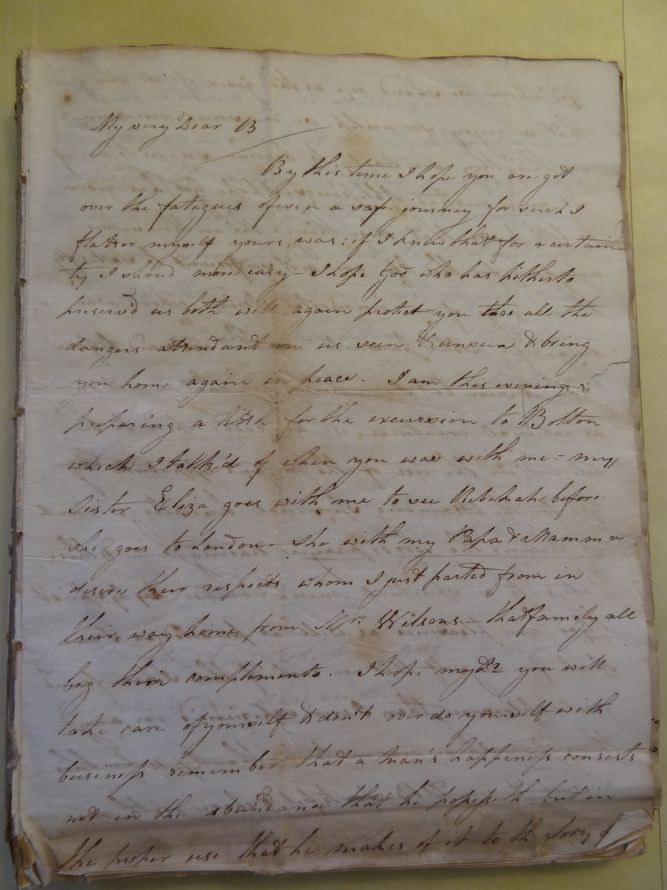 My very Dear B
By this time I hope you are got
over the fategues of even a safe journey for such I
flatter myself yours was; if I knew that for a certain
ty I shoud more easy - I hope God who has hitherto
preserv'd us both will again protect you thro all the
dangers attendant on us seen & unseen & bring
you home again in peace. I am this evening
preparing a little for the excursion to Bolton
which I talk'd of when you was with me - my
Sister Eliza goes with me to see Rebekah before
she goes to London - she with my Papa & Mamma
desire their respects whom I just parted from in
their way home from Mr. Wilsons - that family all
beg their compliments. I hope my Dr you will
take care of yourself & don't over do yourself with
business remember that a man's happiness consists
not in the abundance that he possesseth but in
the proper use that he makes of it to the glory of